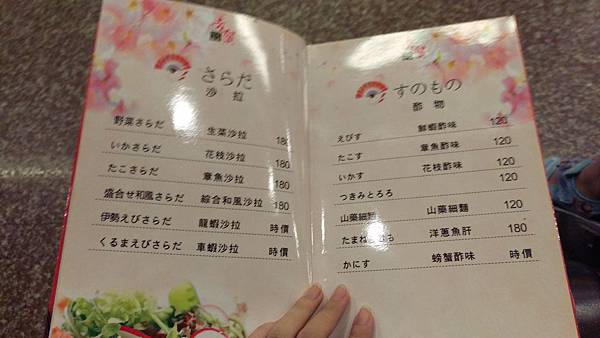 さらだ
沙拉
野菜さらだ 生菜沙拉 180
いかさらだ 花枝沙拉 180
たこさらだ 章魚沙拉 180
盛合せ和風さらだ 綜合和風沙拉 180
伊勢えびさらだ 龍蝦沙拉 時價
くるまえびさらだ 車蝦沙拉 時價
すのもの
酢物
えびす 鮮蝦酢味 120
たこす 章魚酢味 120
いかす 花枝酢味 120
つきみとろろ 120
山薬細麵 山藥細麵 120
たまね 洋蔥魚肝 180
かにす 螃蟹酢味 時價